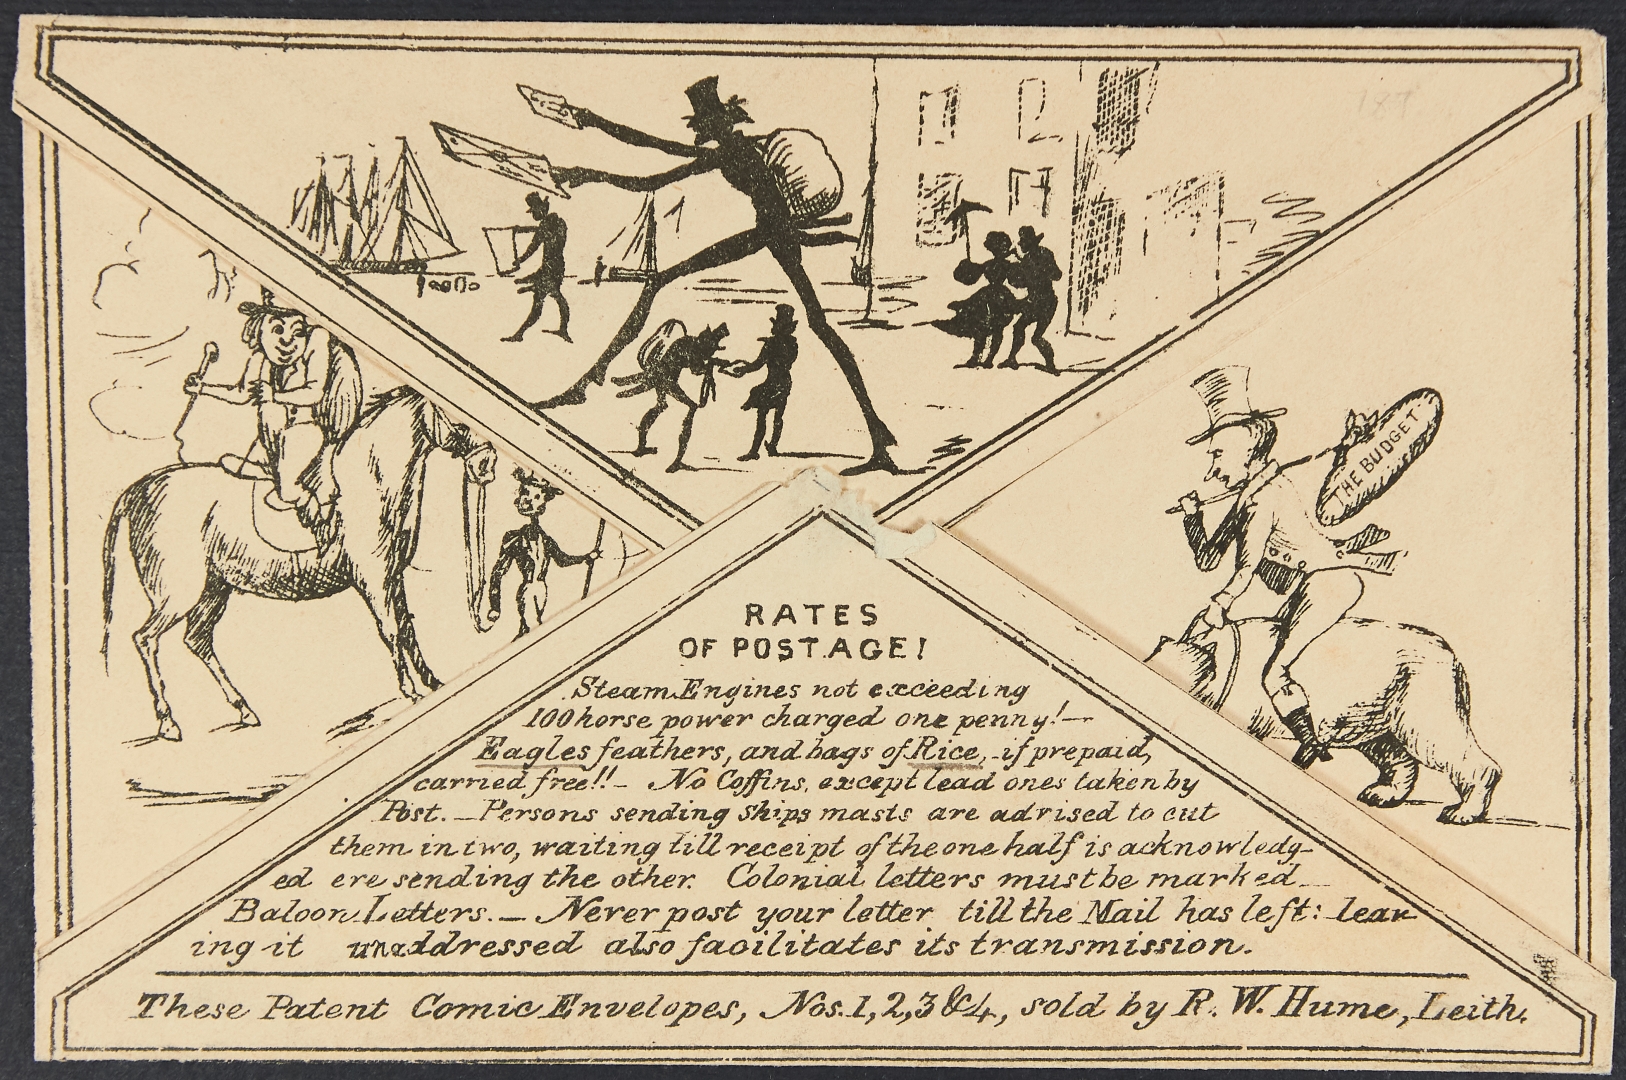 THE BUDGET
RATES
OF POSTAGE!
Steam Engines not exceeding
100 horse power charged one penny!—
Eagles feathers, and bags of Rice, if prepaid,
carried free!! — No Coffins, except lead ones taken by
Post. — Persons sending ships masts are advised to cut
them in two, waiting till receipt of the one half is acknowledg-
ed ere sending the other. Colonial letters must be marked —
Baloon Letters. — Never post your letter till the Mail has left: leav-
ing it unaddressed also facilitates its transmission.
These Patent Comic Envelopes, Nos. 1, 2, 3 & 4, sold by R. W. Hume, Leith.